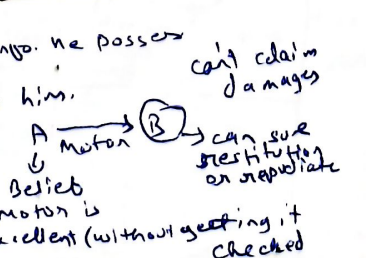 he possess
can't claim
damages
him.
A → B
Motor
→ can sue
restitution
or repudiate
Belief
Motor is
excellent (without getting it
checked